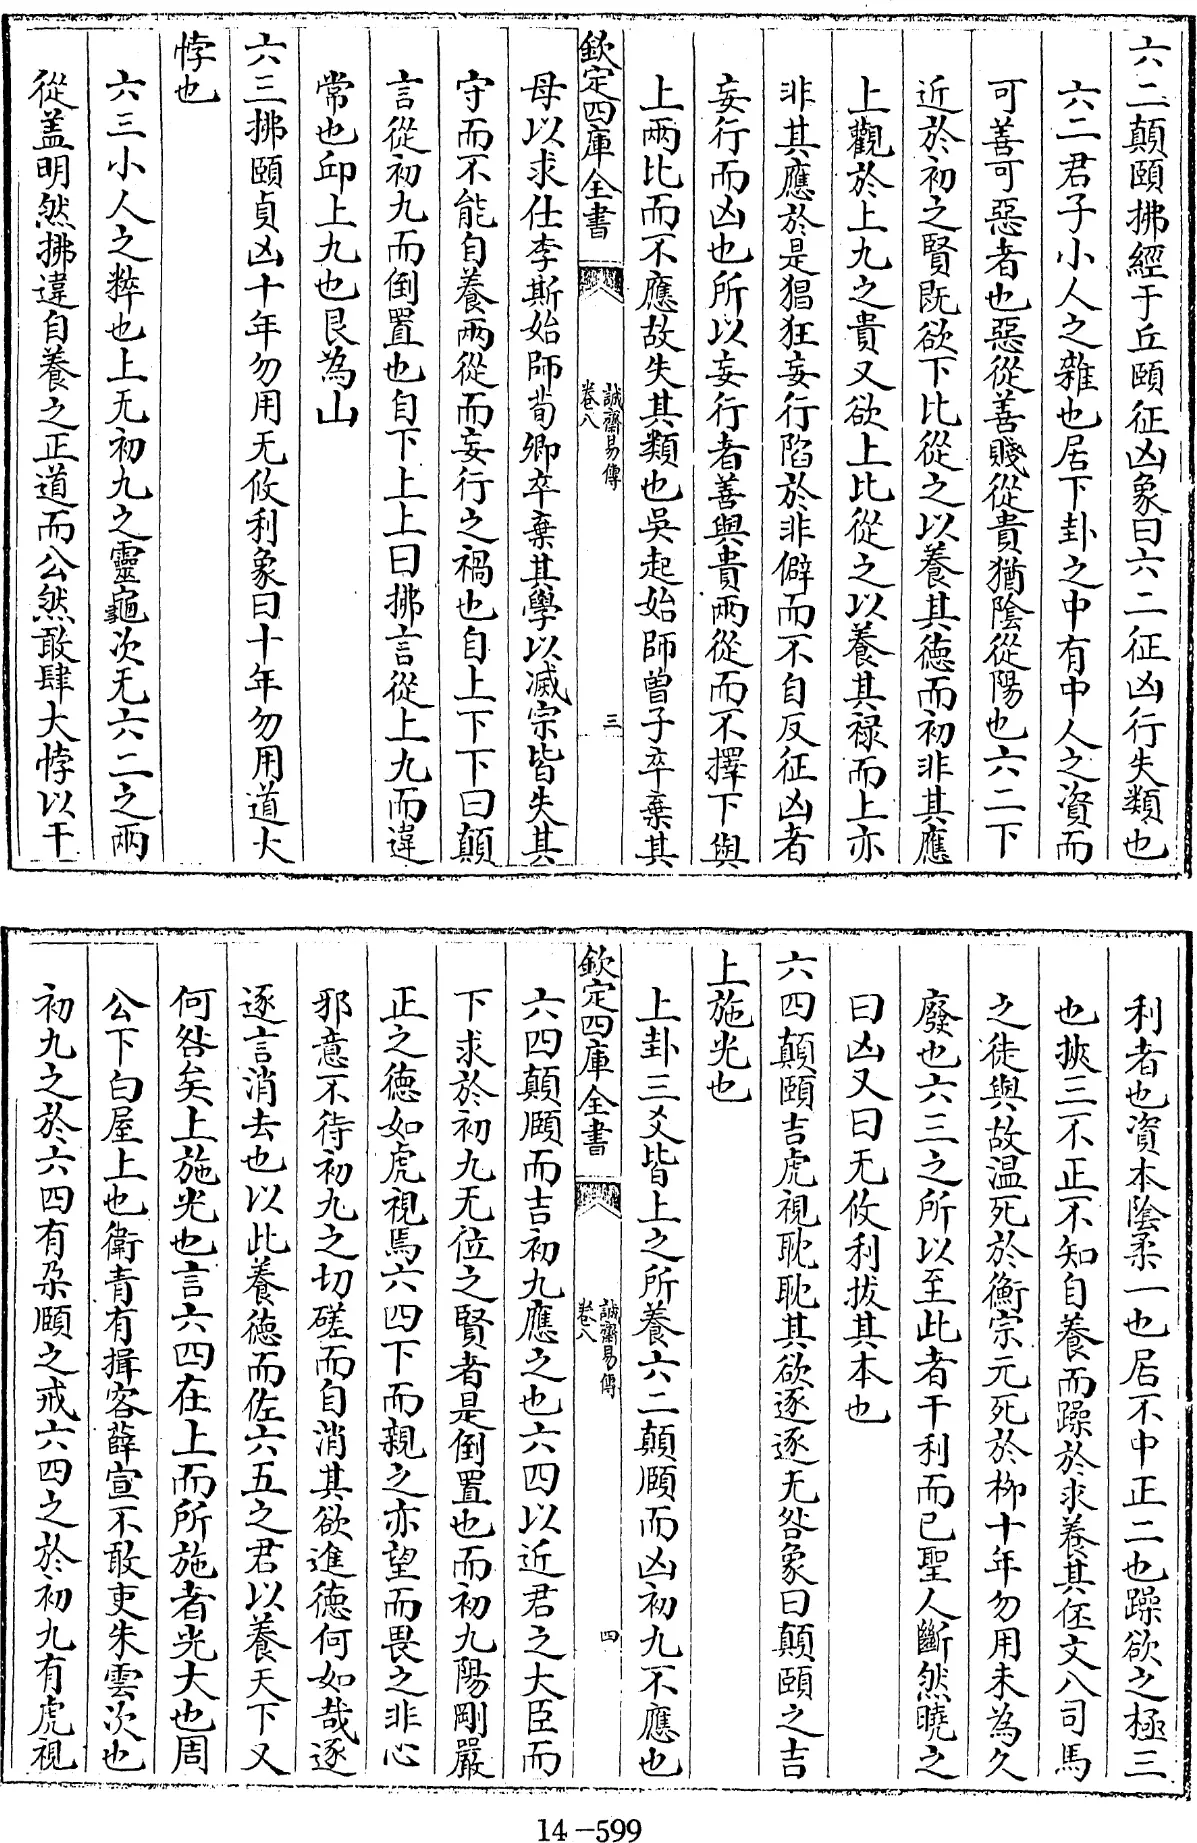 六二顛頤拂經于丘頤征凶象曰六二征凶行失類也
六二君子小人之雜也居下卦之中有中人之資而
可善可惡者也惡從善賤從貴猶陰從陽也六二下
近於初之賢既欲下比從之以養其徳而初非其應
上觀於上九之貴又欲上比從之以養其禄而上亦
非其應於是猖狂妄行陷於非僻而不自反征凶者
妄行而凶也所以妄行者善與貴兩從而不擇下與
上兩比而不應故失其類也吳起始師曾子卒棄其
欽定四庫全書
誠齋易傳
卷八
三
母以求仕李斯始師荀卿卒棄其學以滅宗皆失其
守而不能自養兩從而妄行之禍也自上下下曰顛
言從初九而倒置也自下上上曰拂言從上九而違
常也邱上九也艮為山
六三拂頤貞凶十年勿用无攸利象曰十年勿用道大
悖也
六三小人之粹也上无初九之靈龜次无六二之兩
從盖明然拂違自養之正道而公然敢肆大悖以干
利者也資本陰柔一也居不中正二也躁欲之極三
也挾三不正不知自養而躁於求養其伾文八司馬
之徒與故温死於衡宗元死於柳十年勿用未為久
廢也六三之所以至此者干利而已聖人斷然曉之
曰凶又曰无攸利拔其本也
六四顛頤吉虎視耽耽其欲逐逐无咎象曰顛頤之吉
上施光也
上卦三爻皆上之所養六二顛頤而凶初九不應也
欽定四庫全書
誠齋易傳
卷八
四
六四顛頤而吉初九應之也六四以近君之大臣而
下求於初九无位之賢者是倒置也而初九陽剛嚴
正之徳如虎視焉六四下而親之亦望而畏之非心
邪意不待初九之切磋而自消其欲進徳何如哉逐
逐言消去也以此養徳而佐六五之君以養天下又
何咎矣上施光也言六四在上而所施者光大也周
公下白屋上也衛青有揖客薛宣不敢吏朱雲次也
初九之於六四有朶頤之戒六四之於初九有虎視
14-599